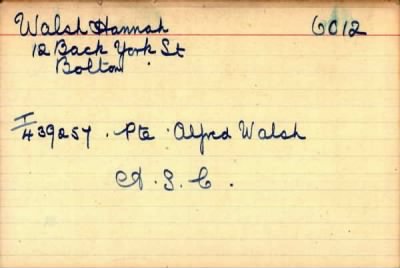 Walsh Hannah 6012
12 Back York St
Bolton
T/439257 . Pte . Alfred Walsh
A. S. C.